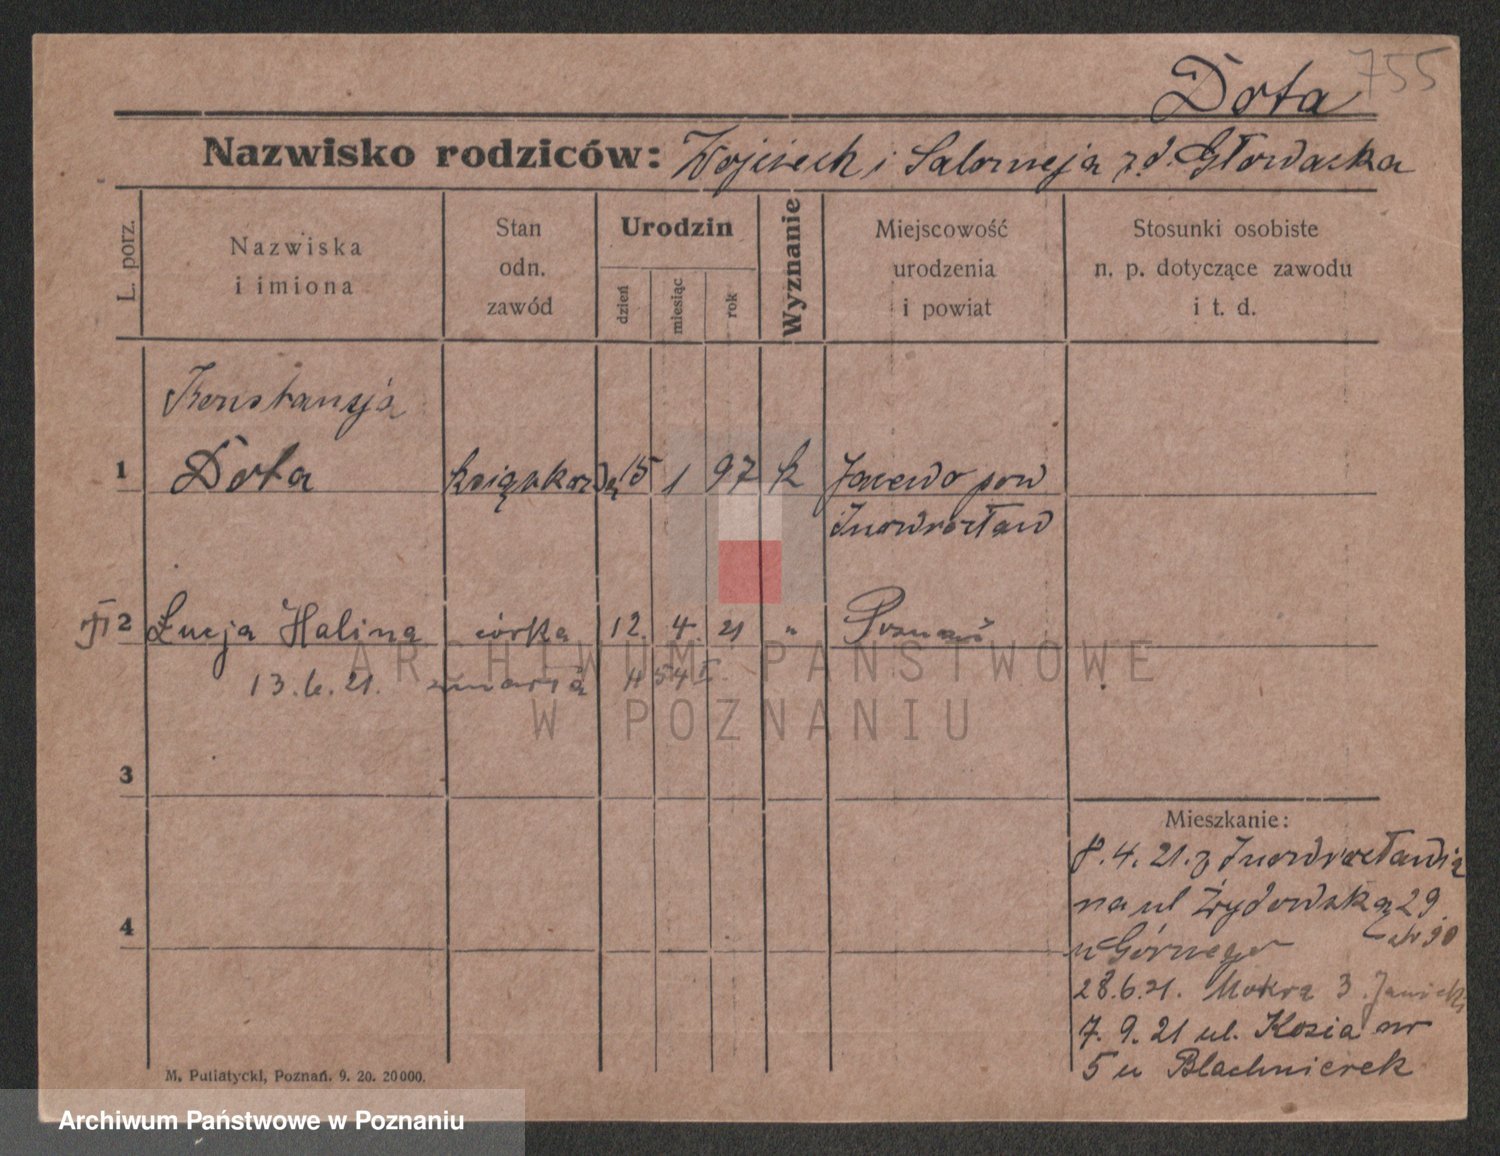 755
Dota
Nazwisko rodziców: Wojciech i Salomeja z d. Głowacka
L. porz.
Nazwiska
i imiona
Stan
odn.
zawód
Urodzin
dzień
miesiąc
rok
Wyznanie
Miejscowość
urodzenia
i powiat
Stosunki osobiste
n. p. dotyczące zawodu
i t. d.
Konstancja
1 Dota 15 1 97 k Jacewo pow
Inowrocław
2 Łucja Halina córka 12. 4. 21 " Poznań
13. 6. 21. zmarła
3
4
Mieszkanie:
8. 4. 21. z Inowrocławia
na ul Żydowską 29
u Górnego
28.6.21. Mokra 3. Janicki
7. 9. 21 ul. Kozia nr
5 u Blachnierek
M. Putiatycki, Poznań. 9. 20. 20000.
ARCHIWUM PAŃSTWOWE
W POZNANIU
Archiwum Państwowe w Poznaniu